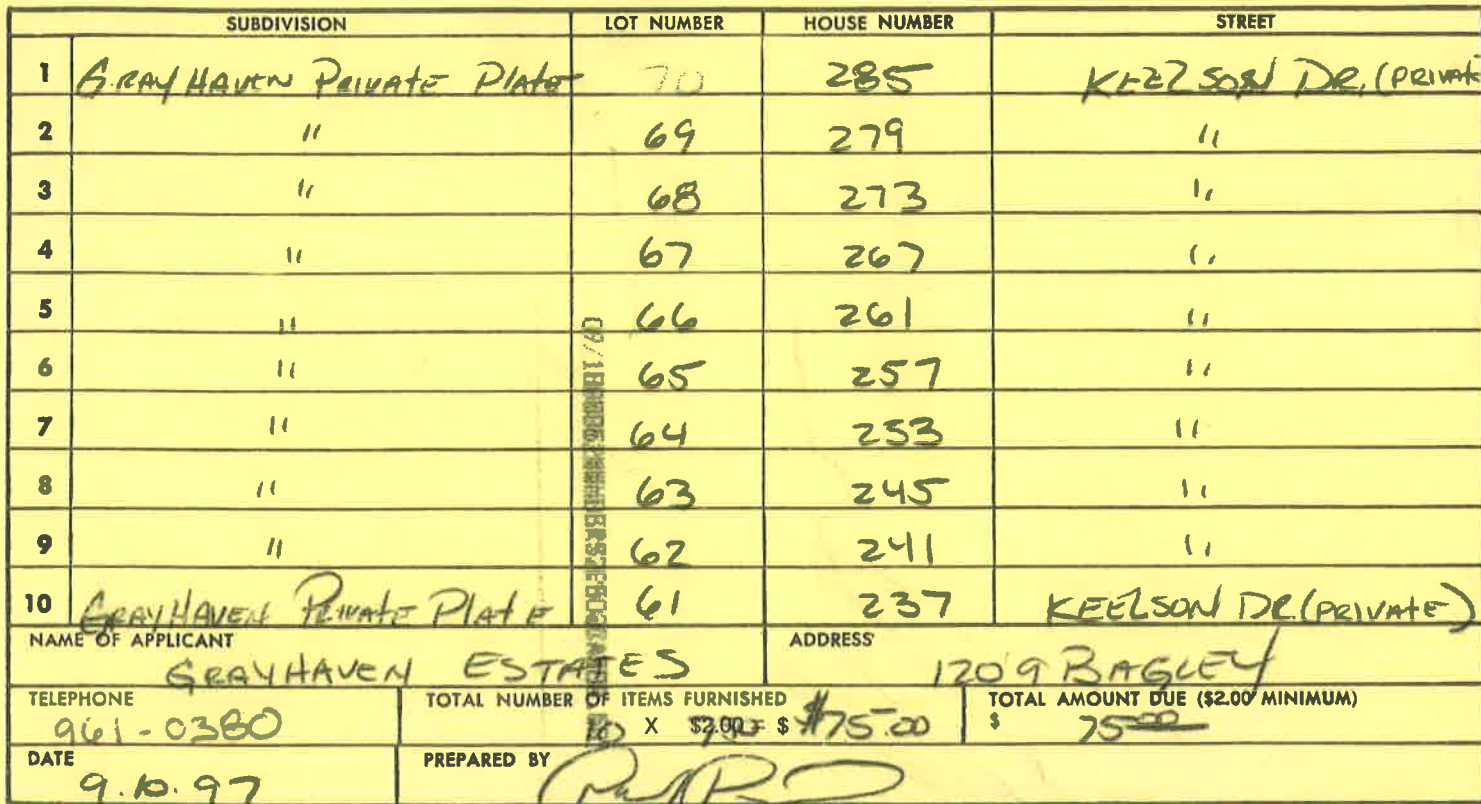 SUBDIVISION LOT NUMBER HOUSE NUMBER STREET
1 GRAYHAVEN PRIVATE PLATE 70 285 KEELSON DR. (PRIVATE
2 " 69 279 "
3 " 68 273 "
4 " 67 267 "
5 " 66 261 "
6 " 65 257 "
7 " 64 253 "
8 " 63 245 "
9 " 62 241 "
10 GRAYHAVEN PRIVATE PLATE 61 237 KEELSON DR. (PRIVATE)
NAME OF APPLICANT ADDRESS
GRAYHAVEN ESTATES 1209 BAGLEY
TELEPHONE TOTAL NUMBER OF ITEMS FURNISHED TOTAL AMOUNT DUE ($2.00 MINIMUM)
961-0380 10 X $2.00 = $ $75.00 $ 75.00
DATE PREPARED BY
9.10.97